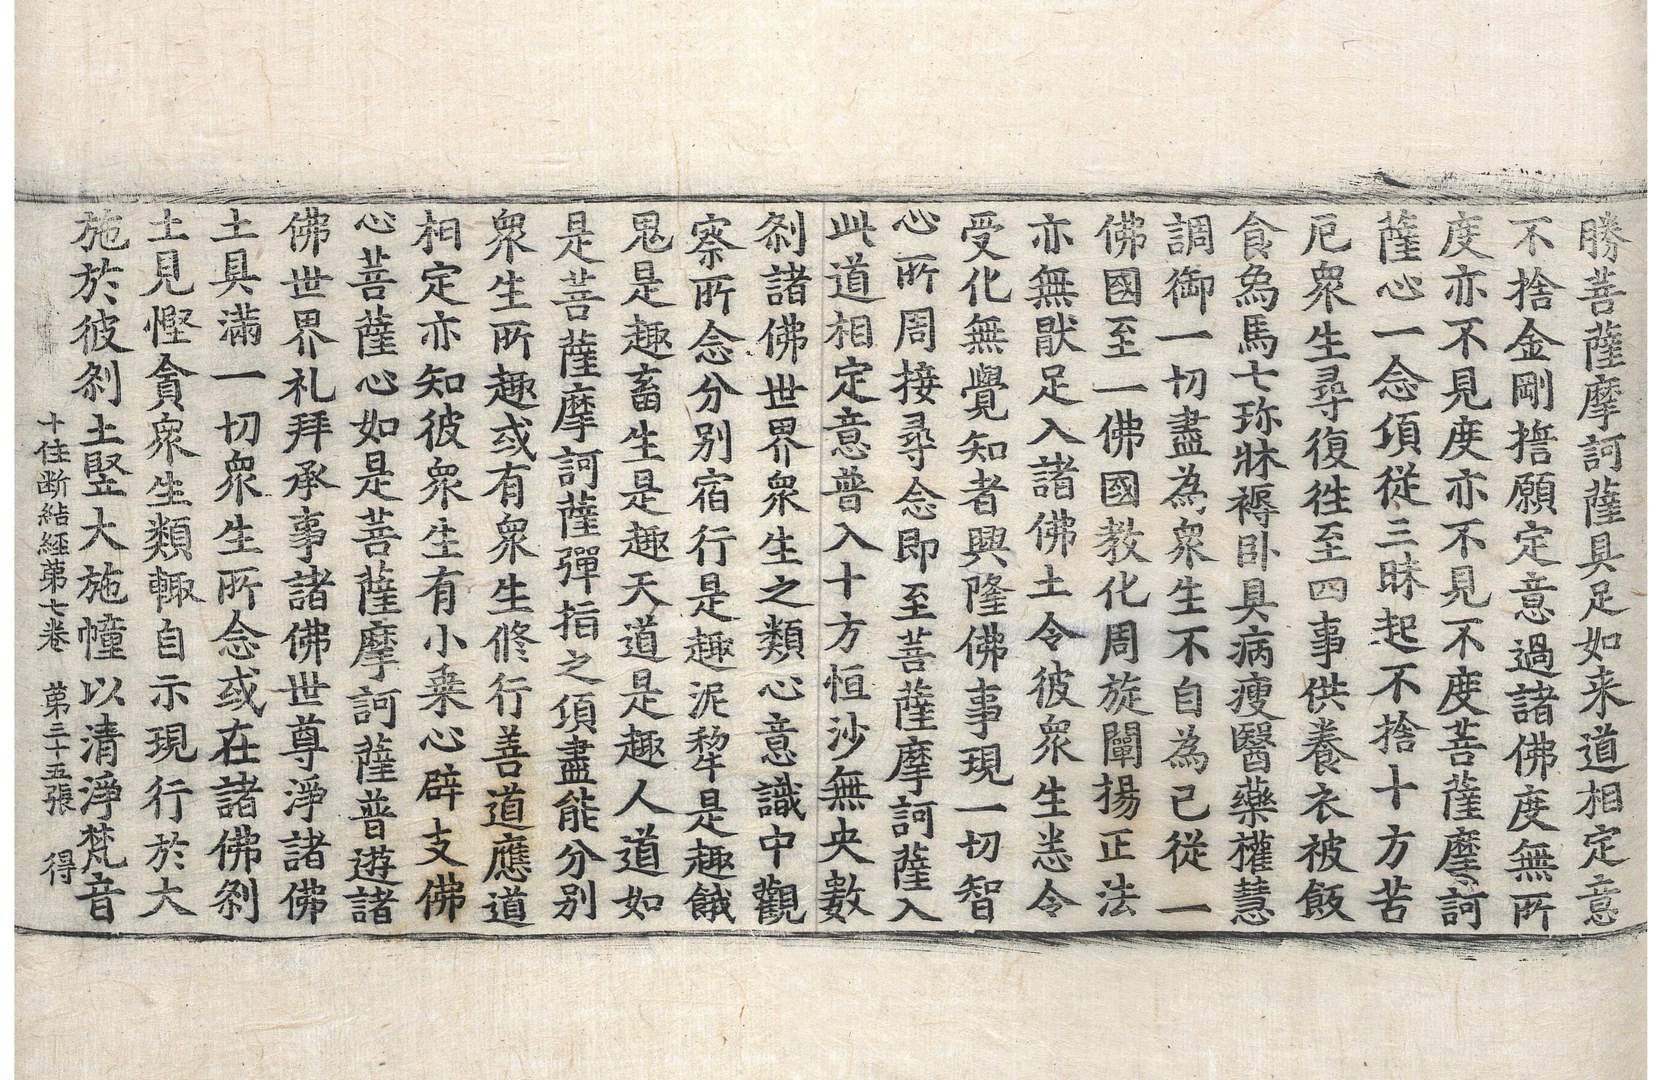 勝菩薩摩訶薩具足如来道相定意
不捨金剛擔願定意過諸佛度無所
度亦不見度亦不見不度菩薩摩訶
薩心一念頃從三昧起不捨十方苦
厄衆生尋復徃至四事供養衣被飯
食象馬七珎牀褥卧具病瘦醫藥權慧
調御一切盡為衆生不自為己從一
佛國至一佛國教化周旋闡揚正法
亦無猒足入諸佛土令彼衆生悉令
受化無覺知者興隆佛事現一切智
心所周接尋念即至菩薩摩訶薩入
此道相定意普入十方恒沙無央數
剎諸佛世界衆生之類心意識中觀
察所念分別宿行是趣泥犂是趣餓
鬼是趣畜生是趣天道是趣人道如
是菩薩摩訶薩彈指之頃盡能分別
衆生所趣或有衆生修行善道應道
相定亦知彼衆生有小乗心辟支佛
心菩薩心如是菩薩摩訶薩普遊諸
佛世界礼拜承事諸佛世尊淨諸佛
土具滿一切衆生所念或在諸佛剎
土見慳貪衆生類輙自示現行於大
施於彼剎土竪大施幢以清淨梵音
十住断結經苐七卷 苐三十五張 得